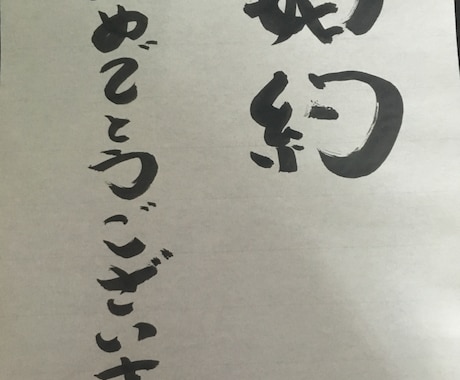 婚約
めでとうございま